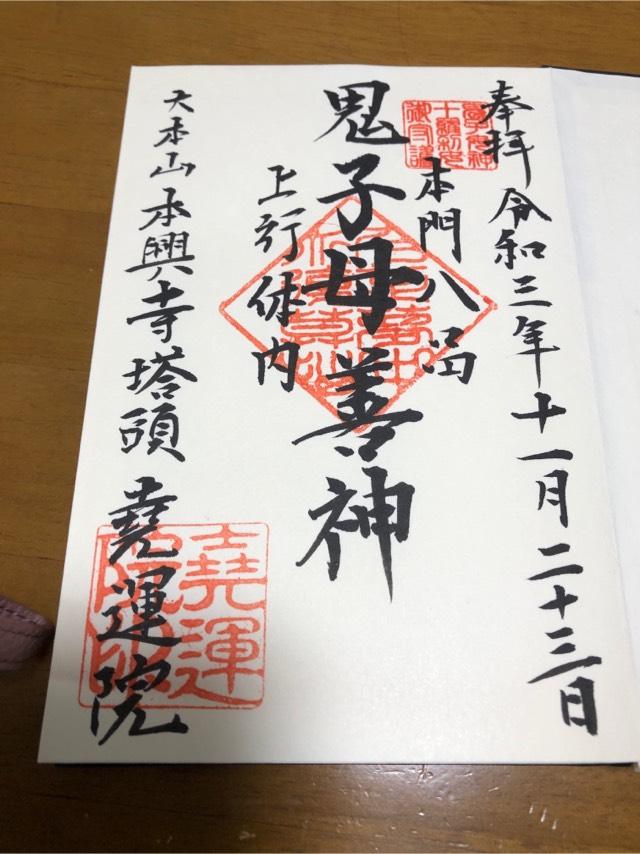 奉拝 令和三年十一月二十三日
本門八品
鬼子母善神
上行体内
大本山本興寺塔頭 堯運院
堯運院印